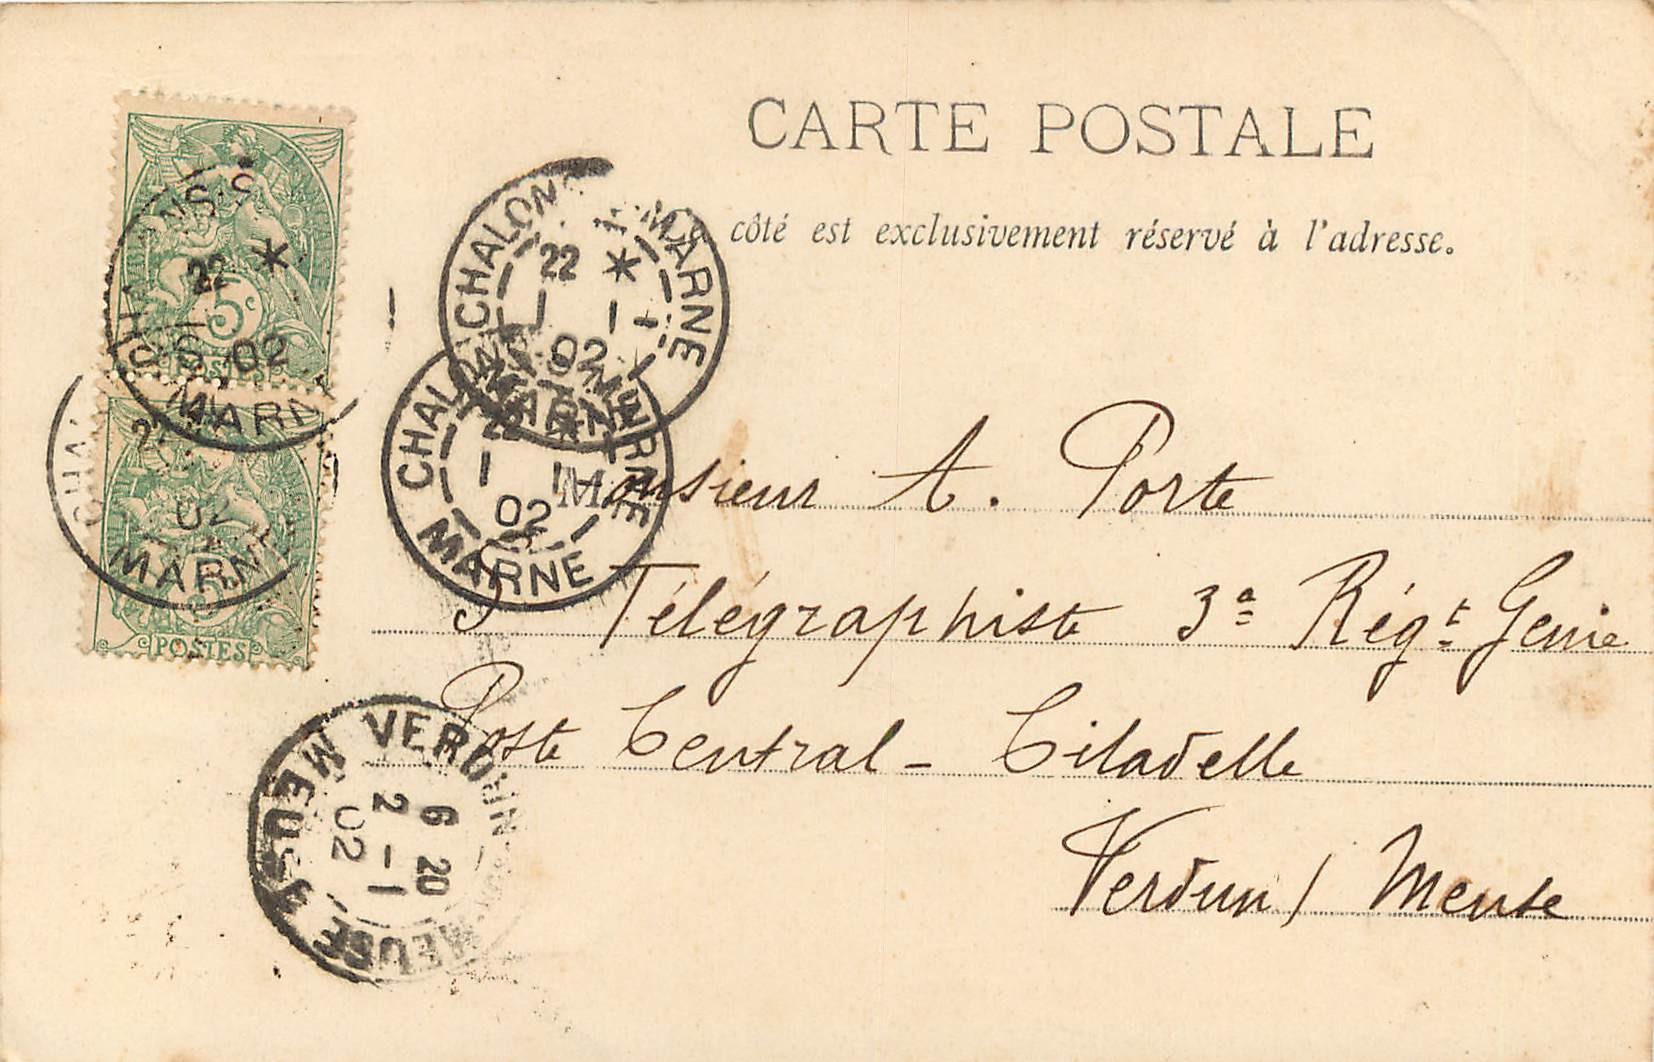 CARTE POSTALE
côté est exclusivement réservé à l'adresse.
CHALONS-S
22
5c
02
POSTES
MARNE
02
MARNE
POSTES
CHALONS
22 *
MARNE
02
CHALONS
02
MARNE
Monsieur A. Porte
Télégraphiste 3e Régt Genie
Poste Central - Citadelle
Verdun / Meuse
VERDUN
6 20
2 - 1
02
MEUSE